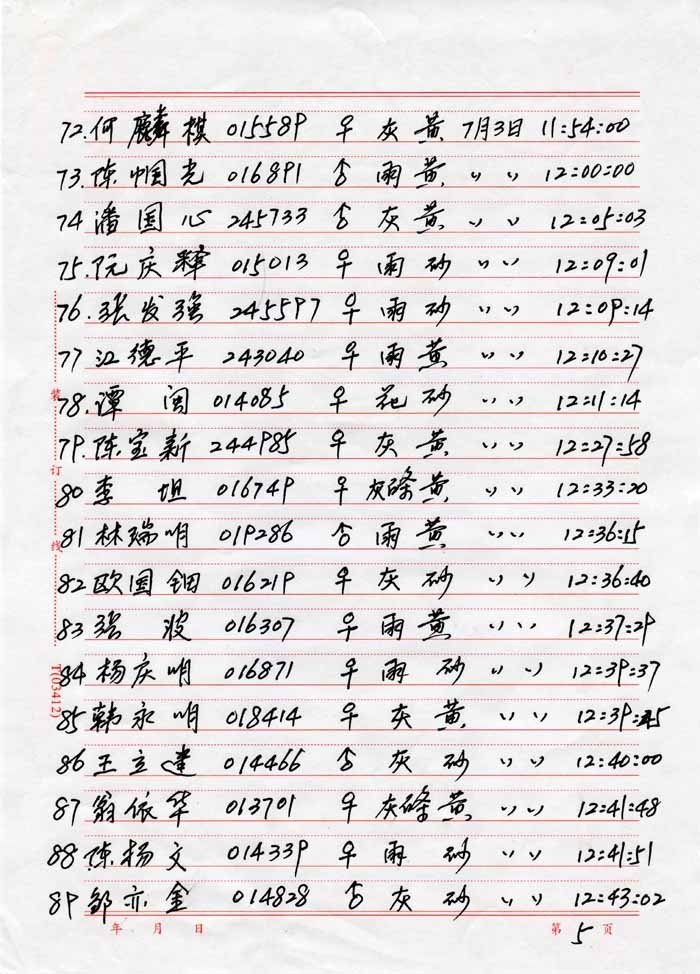 72.何麟棋 015589 ♀ 灰 黄 7月3日 11:54:00
73.陈帼光 016891 ♂ 雨 黄 〃 〃 12:00:00
74 潘国心 245733 ♂ 灰 黄 〃 〃 12:05:03
75.阮庆释 015013 ♀ 雨 砂 〃 〃 12:09:01
76.张发强 245597 ♀ 雨 砂 〃 〃 12:09:14
77 江德平 243040 ♀ 雨 黄 〃 〃 12:10:27
78.谭闽 014085 ♀ 花 砂 〃 〃 12:11:14
79.陈宝新 244985 ♀ 灰 黄 〃 〃 12:27:58
80 李坦 016749 ♀ 灰條 黄 〃 〃 12:33:20
81 林瑞明 019286 ♂ 雨 黄 〃 〃 12:36:15
82 欧国钿 016219 ♀ 灰 砂 〃 〃 12:36:40
83 张波 016307 ♀ 雨 黄 〃 〃 12:37:29
84 杨庆明 016871 ♀ 雨 砂 〃 〃 12:39:37
85 韩永明 018414 ♀ 灰 黄 〃 〃 12:39:45
86 王立建 014466 ♂ 灰 砂 〃 〃 12:40:00
87 翁依华 013701 ♀ 灰條 黄 〃 〃 12:41:48
88 陈杨文 014339 ♀ 雨 砂 〃 〃 12:41:51
89 邹亦金 014828 ♂ 灰 砂 〃 〃 12:43:02
装订线
T(03412)
年 月 日 第 5 页